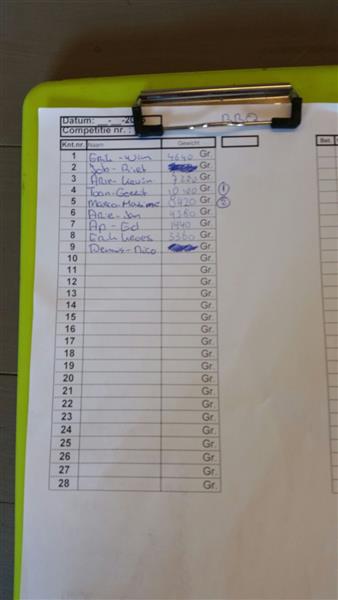 Datum: __-__-20
BBQ
Competitie nr. :
Knt.nr. Naam Gewicht Bet.
1 Erik-Wim 4640 Gr.
2 Job-Piet Gr.
3 Arie-Kevin Gr.
4 Toon-Geert 10100 Gr. 1
5 Marco- 8420 Gr. 2
6 Arie-Jan 4360 Gr.
7 Ap-Ed 1440 Gr.
8 Erik 3360 Gr.
9 Dennis-Nico Gr.
10 Gr.
11 Gr.
12 Gr.
13 Gr.
14 Gr.
15 Gr.
16 Gr.
17 Gr.
18 Gr.
19 Gr.
20 Gr.
21 Gr.
22 Gr.
23 Gr.
24 Gr.
25 Gr.
26 Gr.
27 Gr.
28 Gr.